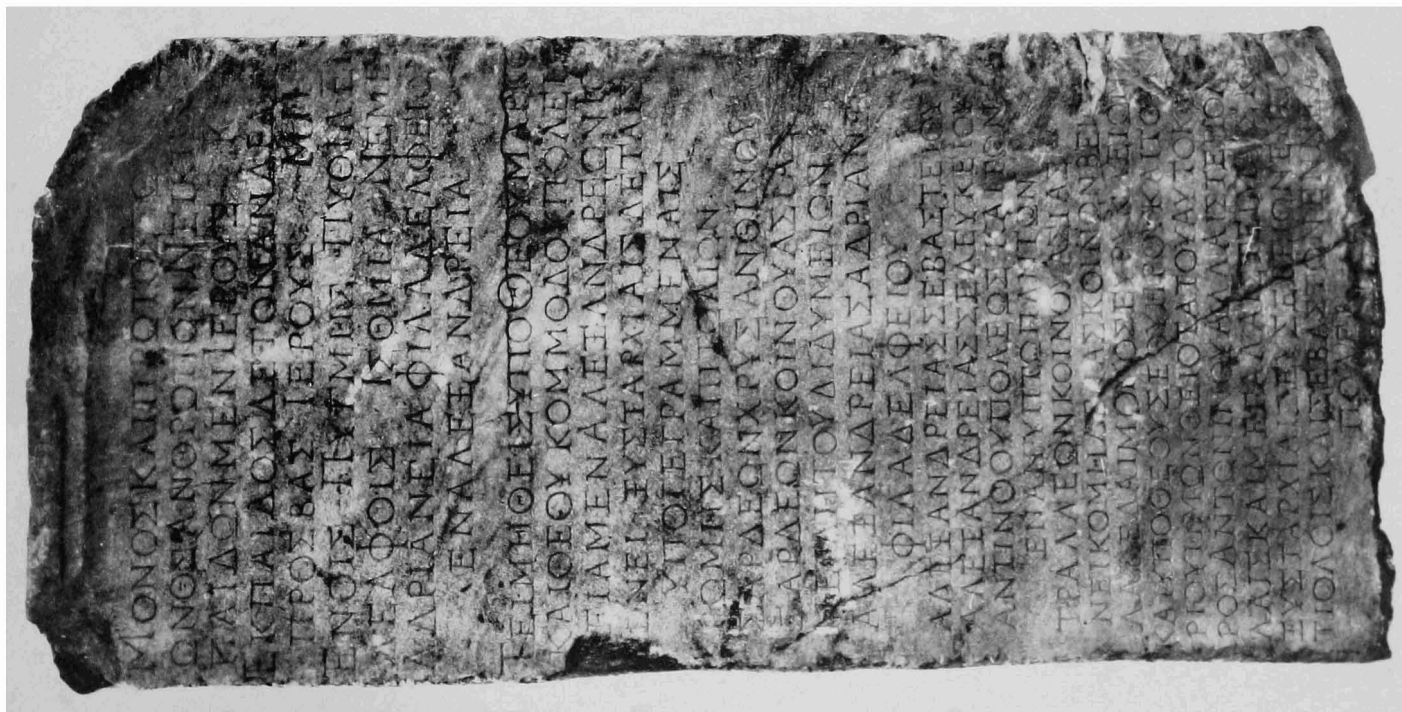 ΜΙΟΝΟΣΚΑΙΠΡΩΤΟΣ
ΩΝΘΣΑΝΘΡΩΠΩΝΝΕΙΚ
ΠΑΙΔΩΝΜΕΝΙΕΡΟΥΣ Κ
ΕΚΠΑΙΔΟΣΔΕΤΟΝΑΝΔΡΑ
ΠΡΟΣΒΑΣ ΙΕΡΟΥΣ ΜΜ
ΓΕΝΟΙΣ ΠΥΓΜΗΣ ΠΥΘΙΑΕΝ
ΔΕΛΦΟΙΣ ΙΣΘΜΙΑ ΝΕΜΕ
ΑΔΡΙΑΝΕΙΑ ΦΙΛΑΔΕΛΦΕΙΟ
ΛΕΝΑΛΕΞΑΝΔΡΕΙΑ
ΤΕΙΜΗΘΕΙΣΥΠΟΘΕΟΥΜΑΡΚΟ
ΚΑΙΘΕΟΥΚΟΜΜΟΔΟΥΠΟΛΕΙ
ΤΕΙΑΜΕΝΑΛΕΞΑΝΔΡΕΩΝΙΘ
ΓΕΝΕΙ ΞΥΣΤΑΡΧΙΑΙΣΔΕΤΑΙΣ
ΥΠΟΓΕΓΡΑΜΜΕΝΑΙΣ
ΡΩΜΗΣΚΑΠΙΤΩΛΙΩΝ
ΣΑΡΔΕΩΝΧΡΥΣΑΝΘΙΝΩΝ
ΣΑΡΔΕΩΝΚΟΙΝΟΥΑΣΙΑΣ
ΜΕΙΛΗΤΟΥΔΙΔΥΜΕΙΩΝ
ΑΛΕΞΑΝΔΡΕΙΑΣΑΔΡΙΑΝ
ΦΙΛΑΔΕΛΦΕΙΟΥ
ΑΛΕΞΑΝΔΡΕΙΑΣΣΕΒΑΣΤΕΙΟΥ
ΑΛΕΞΑΝΔΡΕΙΑΣΣΕΛΕΥΚΕΙΟΥ
ΑΝΤΙΝΟΟΥΠΟΛΕΩΣΚΑΙΤΩΝ
ΕΝΑΙΓΥΠΤΩΠΑΝΤΩΝ
ΤΡΑΛΛΕΩΝΚΟΙΝΟΥΑΣΙΑΣ
ΝΕΙΚΟΜΗΔΙΑΣΚΟΙΝΩΝΒΕΙ
ΛΑΚΕΔΑΙΜΟΝΟΣΕΥΡΥΚΛΕΙΩ
ΚΑΙΥΠΟΘΕΟΥΣΕΟΥΗΡΟΥΚΑΙΤΟ
ΡΙΟΥΗΜΩΝΘΕΙΟΤΑΤΟΥΑΥΤΟΚ
ΡΟΣΑΝΤΩΝΙΝΟΥΑΛΛΑΙΣΤΕΠΟΛ
ΛΑΙΣΚΑΙ
ΞΥΣΤΑΡΧΙΑΙΣΕΥΣΕΒΕΙΩΝ
ΤΙΟΛΟΙΣΚΑΙΣΕΒΑΣΤΩΝΕΝΝΕΑ
ΠΟΛΕΙ